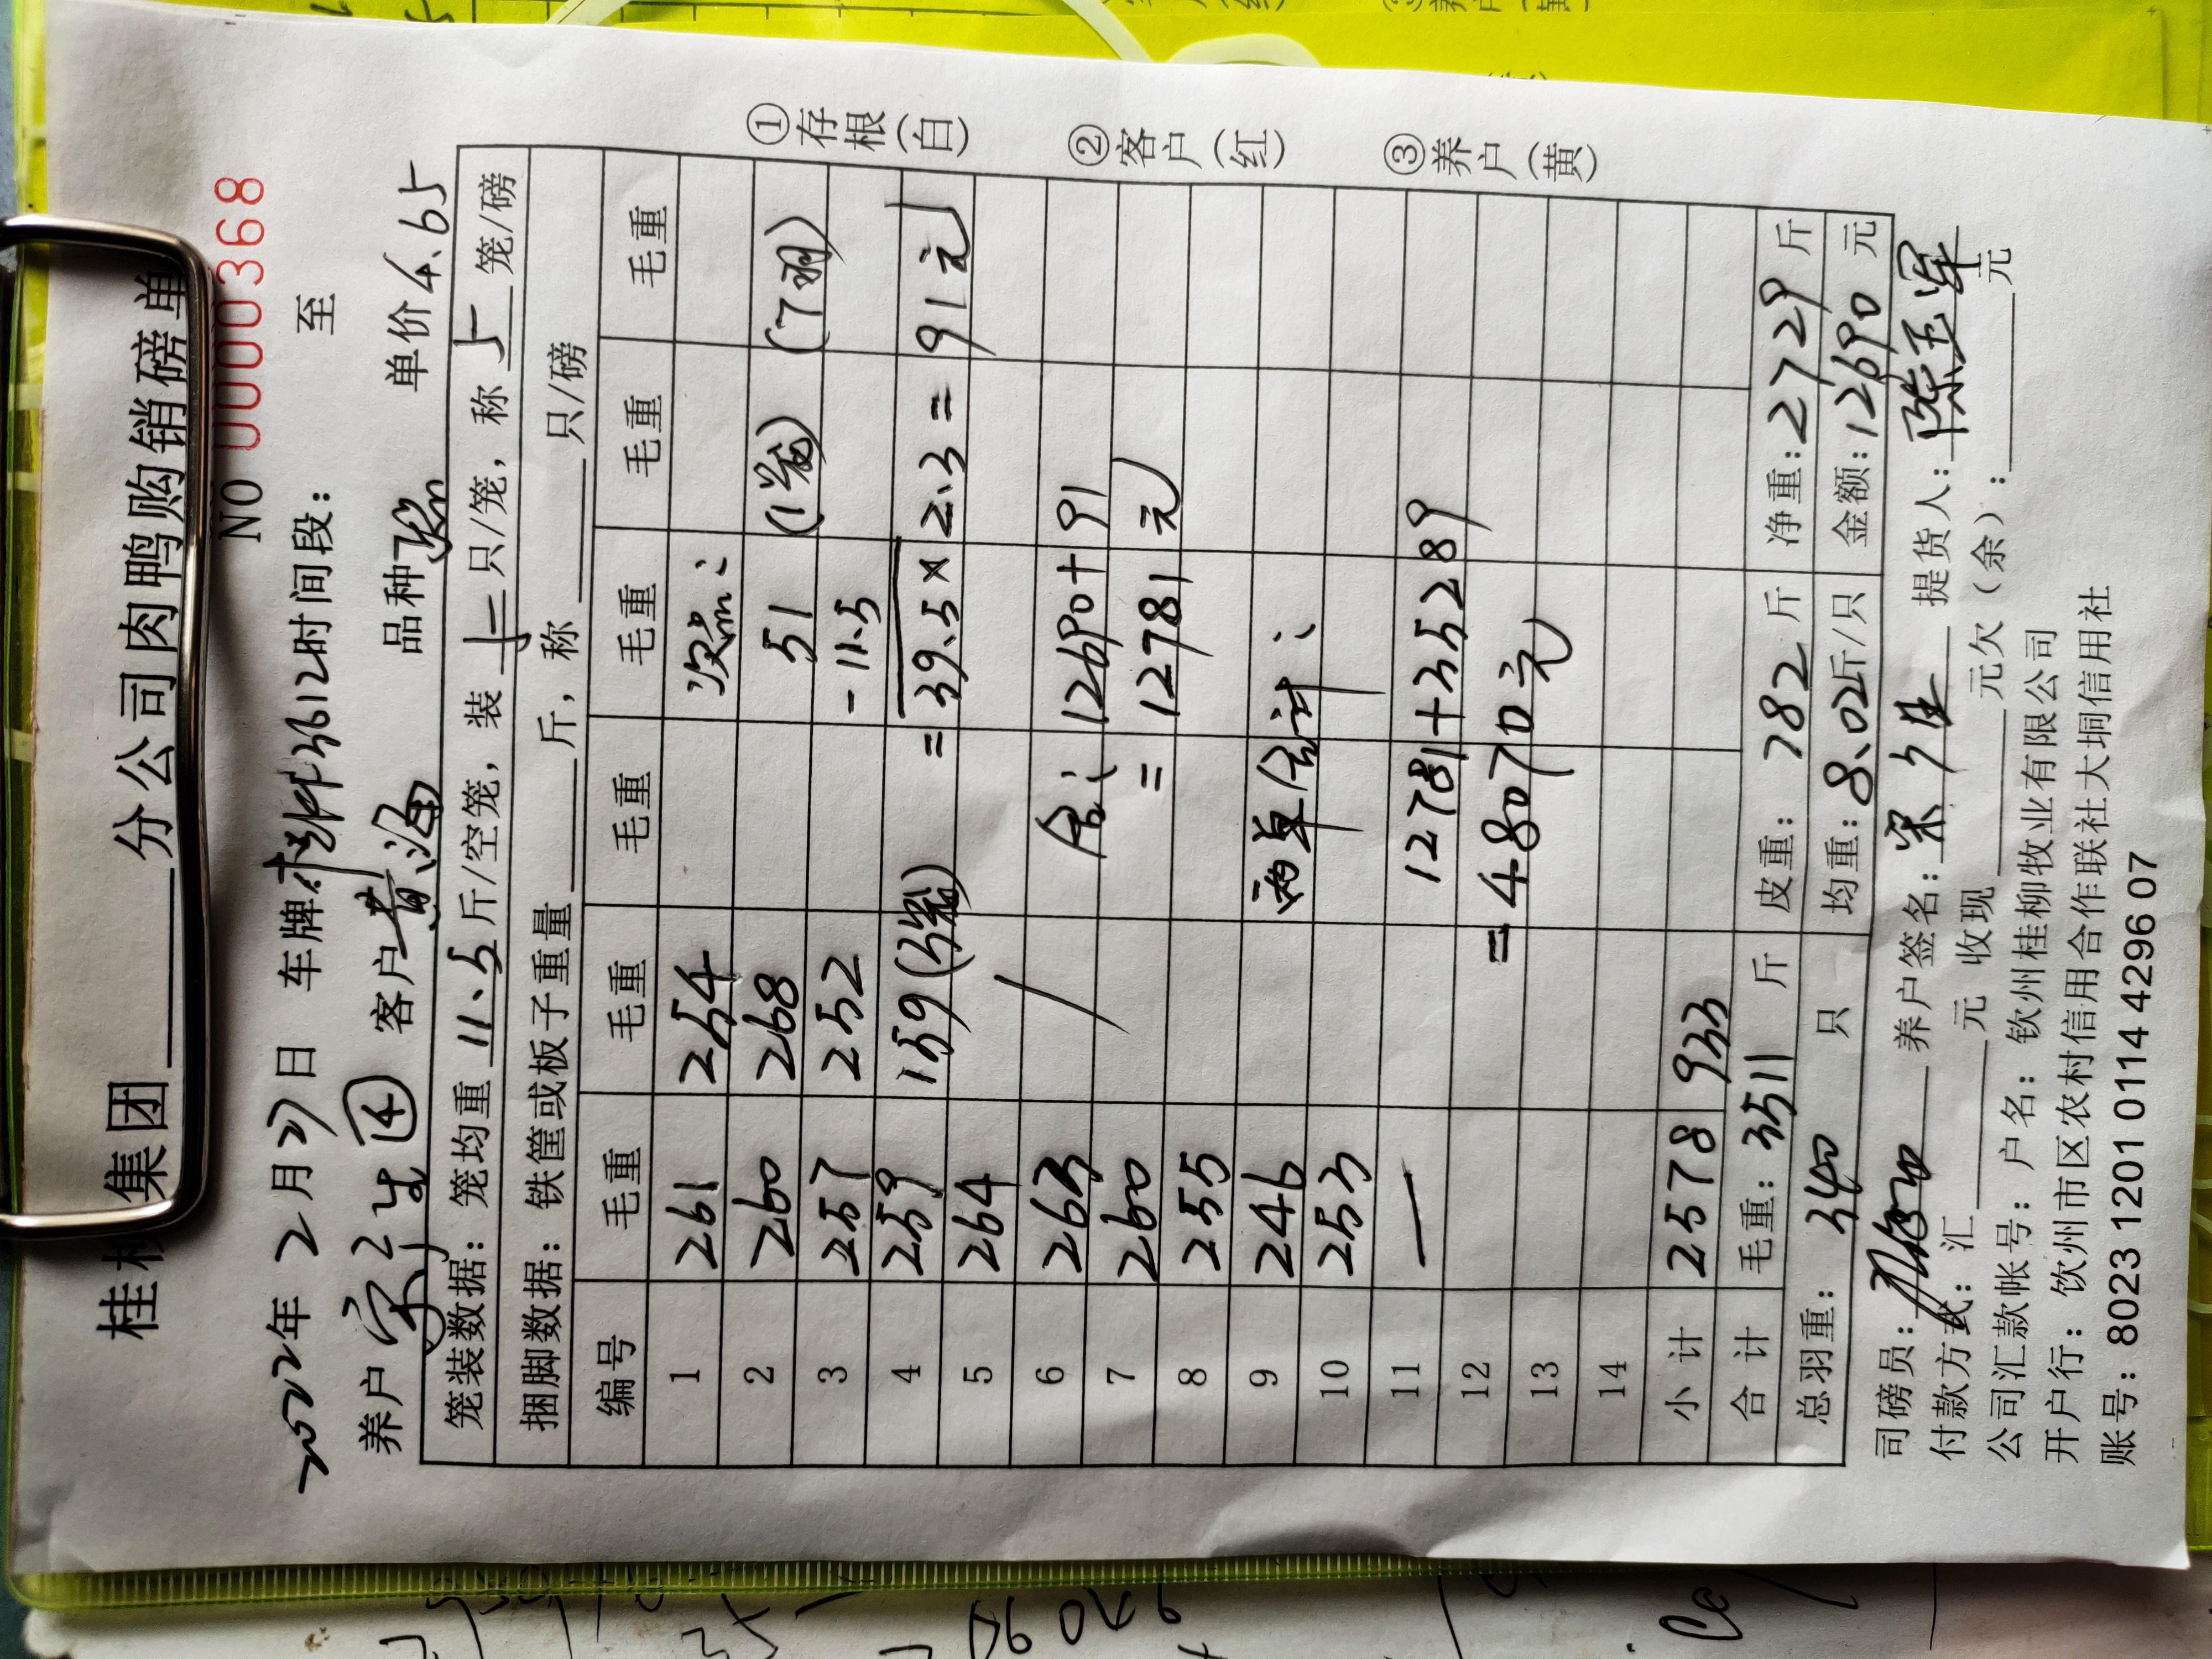 桂柳集团 分公司肉鸭购销磅单
NO 0000368
2022年 2月27日 车牌:桂 3612时间段: 至
养户 宋2生 ④ 客户 黄海 品种 单价4.65
笼装数据: 笼均重 11.5 斤/空笼, 装 只/笼, 称 5 笼/磅
捆脚数据: 铁筐或板子重量 斤, 称 只/磅
编号 毛重 毛重 毛重 毛重 毛重 毛重
1 261 254 次鸭:
2 260 268 51 (1笼) (7羽)
3 257 252 -11.5
4 259 159(3笼) =39.5×2.3= 91元
5 264
6 263 合: 12690+91
7 260 =12781元
8 255
9 246 两单合计:
10 253
11 — 12781+35289
12 =48070元
13
14
小计 2578 933
合计 毛重: 3511 斤 皮重: 782 斤 净重: 2729 斤
总羽重: 340 只 均重: 8.02斤/只 金额: 12690 元
司磅员: 养户签名: 宋 生 提货人: 陈玉军
付款方式: 汇 元 收现 元欠(余): 元
公司汇款帐号: 户名: 钦州桂柳牧业有限公司
开户行: 钦州市区农村信用合作联社大垌信用社
账号: 8023 1201 0114 4296 07
①存根(白)
②客户(红)
③养户(黄)